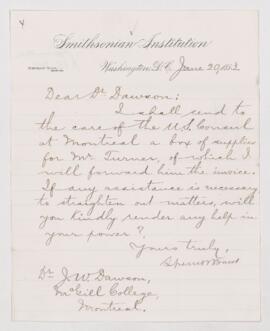 4
Smithsonian Institution
Washington, D.C. June 20, 1883
Dear Dr. Dawson:
I shall send to
the care of the U.S. Consul
at Montreal a box of supplies
for Mr. Turner, of which I
will forward him the invoice.
If any assistance is necessary
to straighten out matters, will
you kindly render any help in
your power?
Yours truly,
Dr. J. W. Dawson,
McGill College,
Montreal.